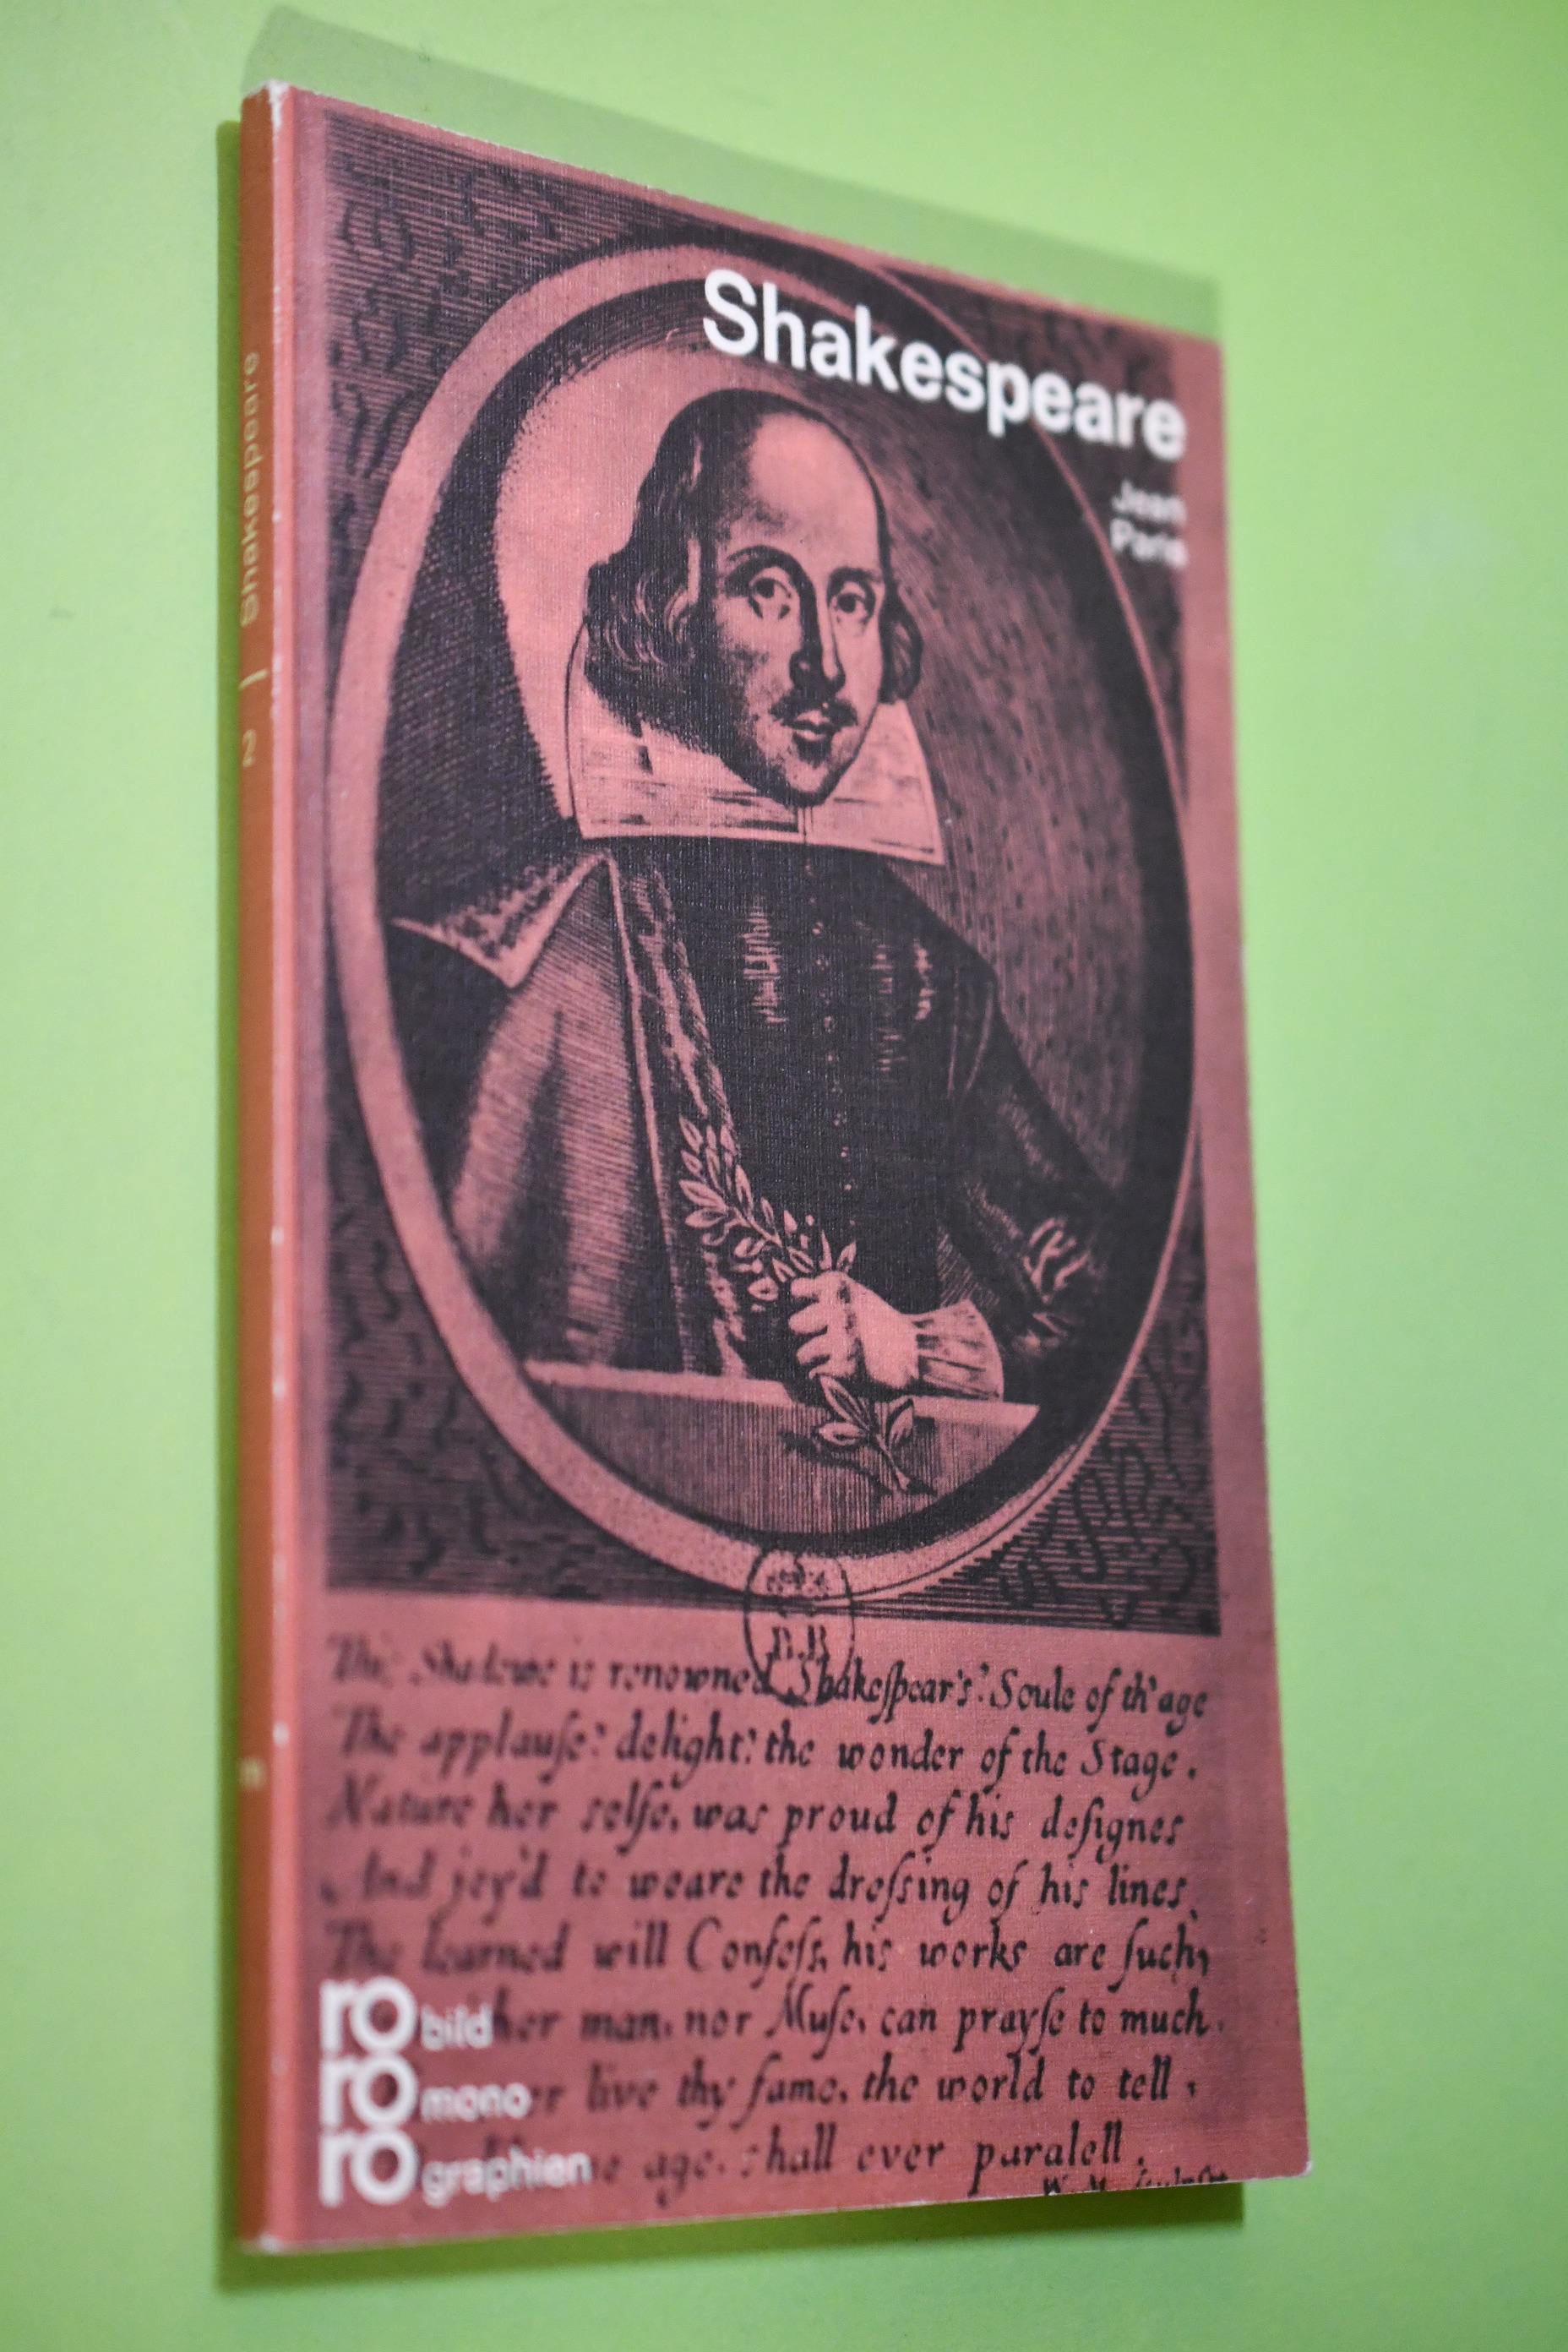 Shakespeare
Jean
Paris
Shakespeare
2
This Shadowe is renowned Shakeſpear's? Soule of th' age
The applauſe? delight? the wonder of the Stage.
Nature her selfe, was proud of his deſignes
And joy'd to weare the dreſsing of his lines,
The learned will Confeſs, his works are ſuch,
her man, nor Muſe, can prayſe to much.
er live thy fame, the world to tell,
e age, shall ever paralell.
W. M. sculpsit
ro bild
ro mono
ro graphien